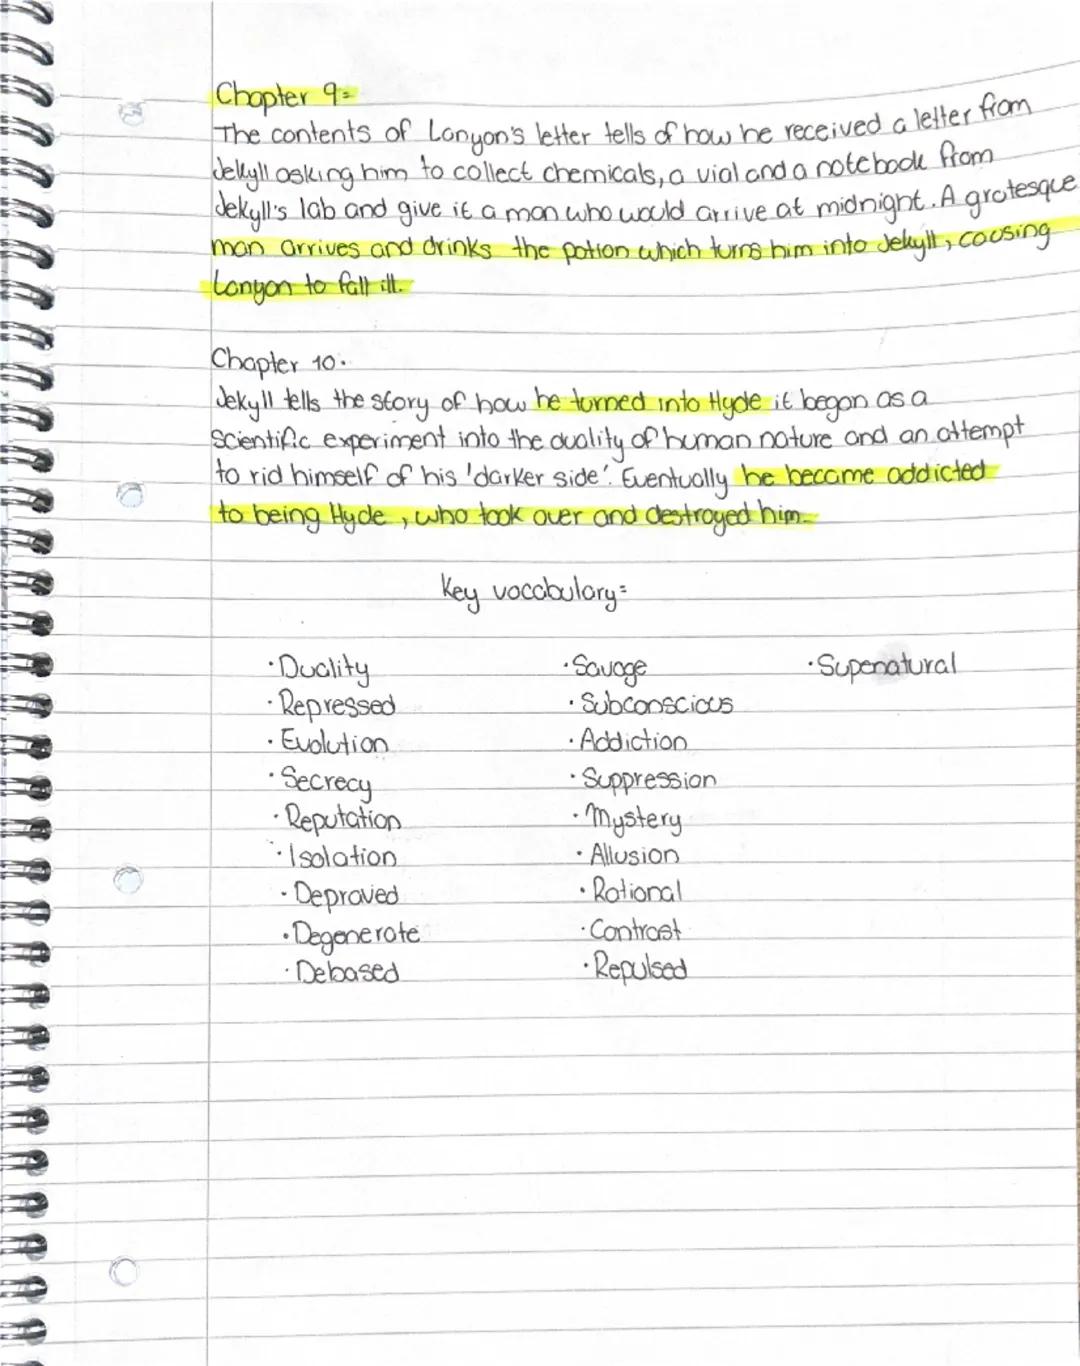 Chapter 9=
The contents of Lanyon's letter tells of how he received a letter from
Jekyll asking him to collect chemicals, a vial and a notebook from
Jekyll's lab and give it a man who would arrive at midnight. A grotesque
man arrives and drinks the potion which turns him into Jekyll, causing
Lanyon to fall ill.
Chapter 10.
Jekyll tells the story of how he turned into Hyde it began as a
scientific experiment into the duality of human nature and an attempt
to rid himself of his 'darker side'. Eventually he became addicted
to being Hyde, who took over and destroyed him.
Key vocabulary=
· Duality · Savage · Supenatural
· Repressed · Subconscious
· Evolution · Addiction
· Secrecy · Suppression
· Reputation · Mystery
· Isolation · Allusion
· Depraved · Rational
· Degenerate · Contrast
· Debased · Repulsed